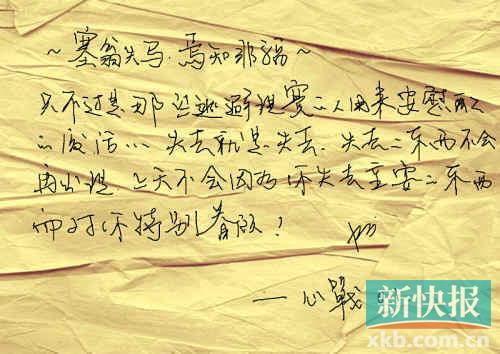 ~塞翁失马.焉知非福~
只不过是那些逃避现实的人用来安慰
的废话… 失去就是失去.失去的东西不会
再出现.上天不会因为你失去重要的东西
而对你特别眷顾!
—心戰
新快报
xkb.com.cn